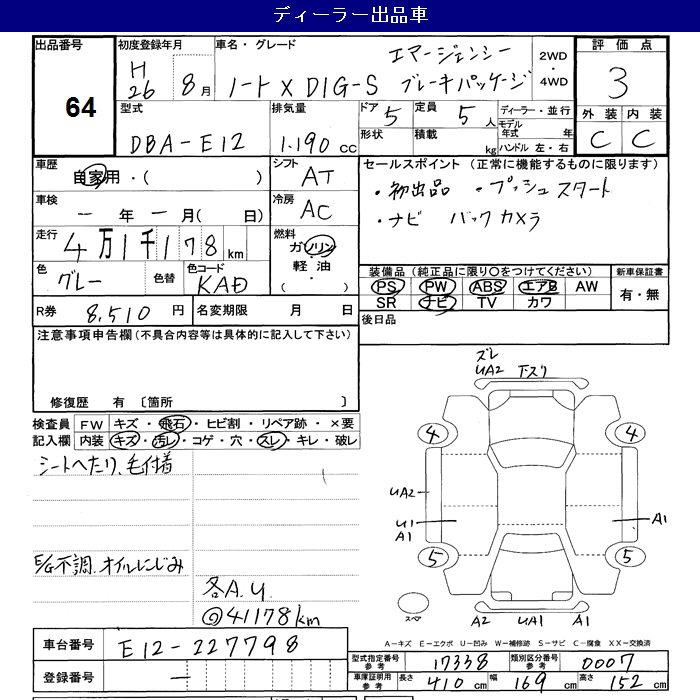 ディーラー出品車
出品番号 初度登録年月 車名・グレード 評価点
64
H26年 8月 ノート X DIG-S エマージェンシーブレーキパッケージ 2WD・4WD 3
型式 排気量 ドア 5 定員 5人 ディーラー・並行 外装 内装
DBA-E12 1.190cc 形状 積載 kg モデル年式 年 ハンドル 左・右 C C
車歴 シフト セールスポイント（正常に機能するものに限ります）
自家用・（ ） AT ・初出品 ・プッシュスタート
車検 冷房 ・ナビ バックカメラ
－年－月（ 日） AC
走行 燃料
4万1千178km ガソリン・軽油・（ ）
色 色替 色コード 装備品（純正品に限り○をつけてください） 新車保証書
グレー KAD PS PW ABS エアB AW 有・無
R券 8,510円 名変期限 月 日 SR ナビ TV カワ
注意事項申告欄（不具合内容等は具体的に記入して下さい） 後日品
修復歴 有〔箇所 〕
検査員 FW キズ・飛石・ヒビ割・リペア跡・×要
記入欄 内装 キズ・汚レ・コゲ・穴・スレ・キレ・破レ
シートへたり、毛付着
E/G不調、オイルにじみ
各A.U
41178km
ズレ
UA2 下スリ
4 4
UA2
U1 A1
A1
5 5
スペア
A2 UA1 A1
A－キズ E－エクボ U－凹み W－補修跡 S－サビ C－腐食 XX－交換済
車台番号 E12-227798
型式指定番号 参考 17338 類別区分番号 参考 0007
登録番号 －
車庫証明用 参考 長さ 410cm 幅 169cm 高さ 152cm